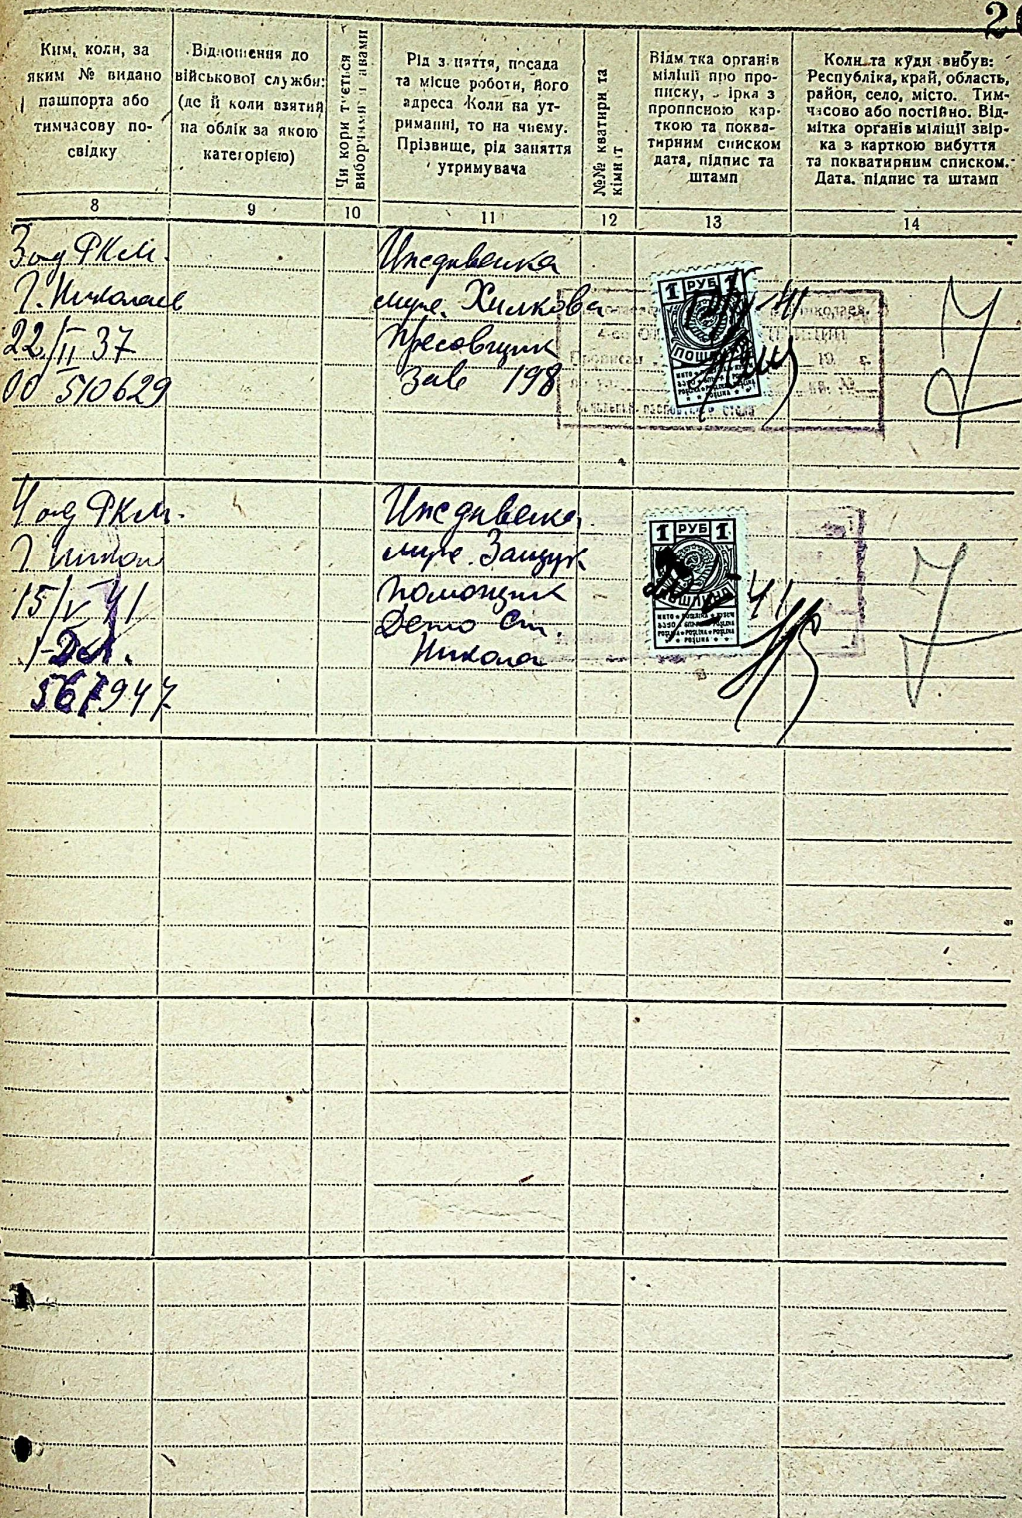 2
Ким, коли, за
яким № видано
пашпорта або
тимчасову по-
свідку
Відношення до
військової служби:
(де й коли взятий
на облік за якою
категорією)
Чи кори т ється
виборчими авами
Рід з няття, посада
та місце роботи, його
адреса Коли на ут-
риманні, то на чиєму.
Прізвище, рід заняття
утримувача
№№ кватири та
кімн т
Відм тка органів
міліції про про-
писку, ірка з
прописною кар-
ткою та поква-
тирним списком
дата, підпис та
штамп
Коли та куди вибув:
Республіка, край, область,
район, село, місто. Тим-
часово або постійно. Від-
мітка органів міліції звір-
ка з карткою вибуття
та покватирним списком.
Дата. підпис та штамп
8 9 10 11 12 13 14
3 од РКМ.
Г. Николаев
22/II 37
510629
Иждивенка
муж. Хилкова
Пресовщик
Зав 198
1 РУБ 1
ПОШЛИНА
4 од РКМ.
15/V 41
567947
Иждивенка
муж. Защук
помощник
Депо Ст.
Никола
1 РУБ 1
ПОШЛИНА